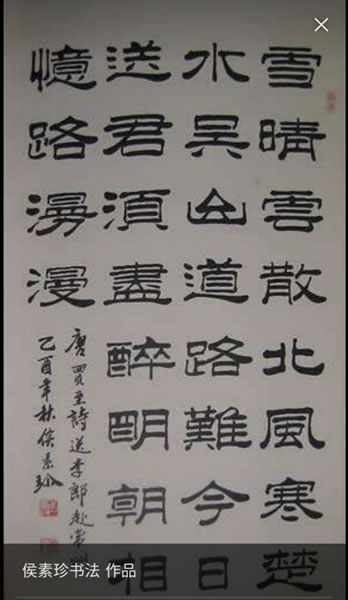 雪晴雲散北風寒楚
水吳山道路難今日
送君須盡醉明朝相
憶路漫漫
唐賈至詩送李郎赴常
乙酉年秋侯素珍
侯素珍书法 作品